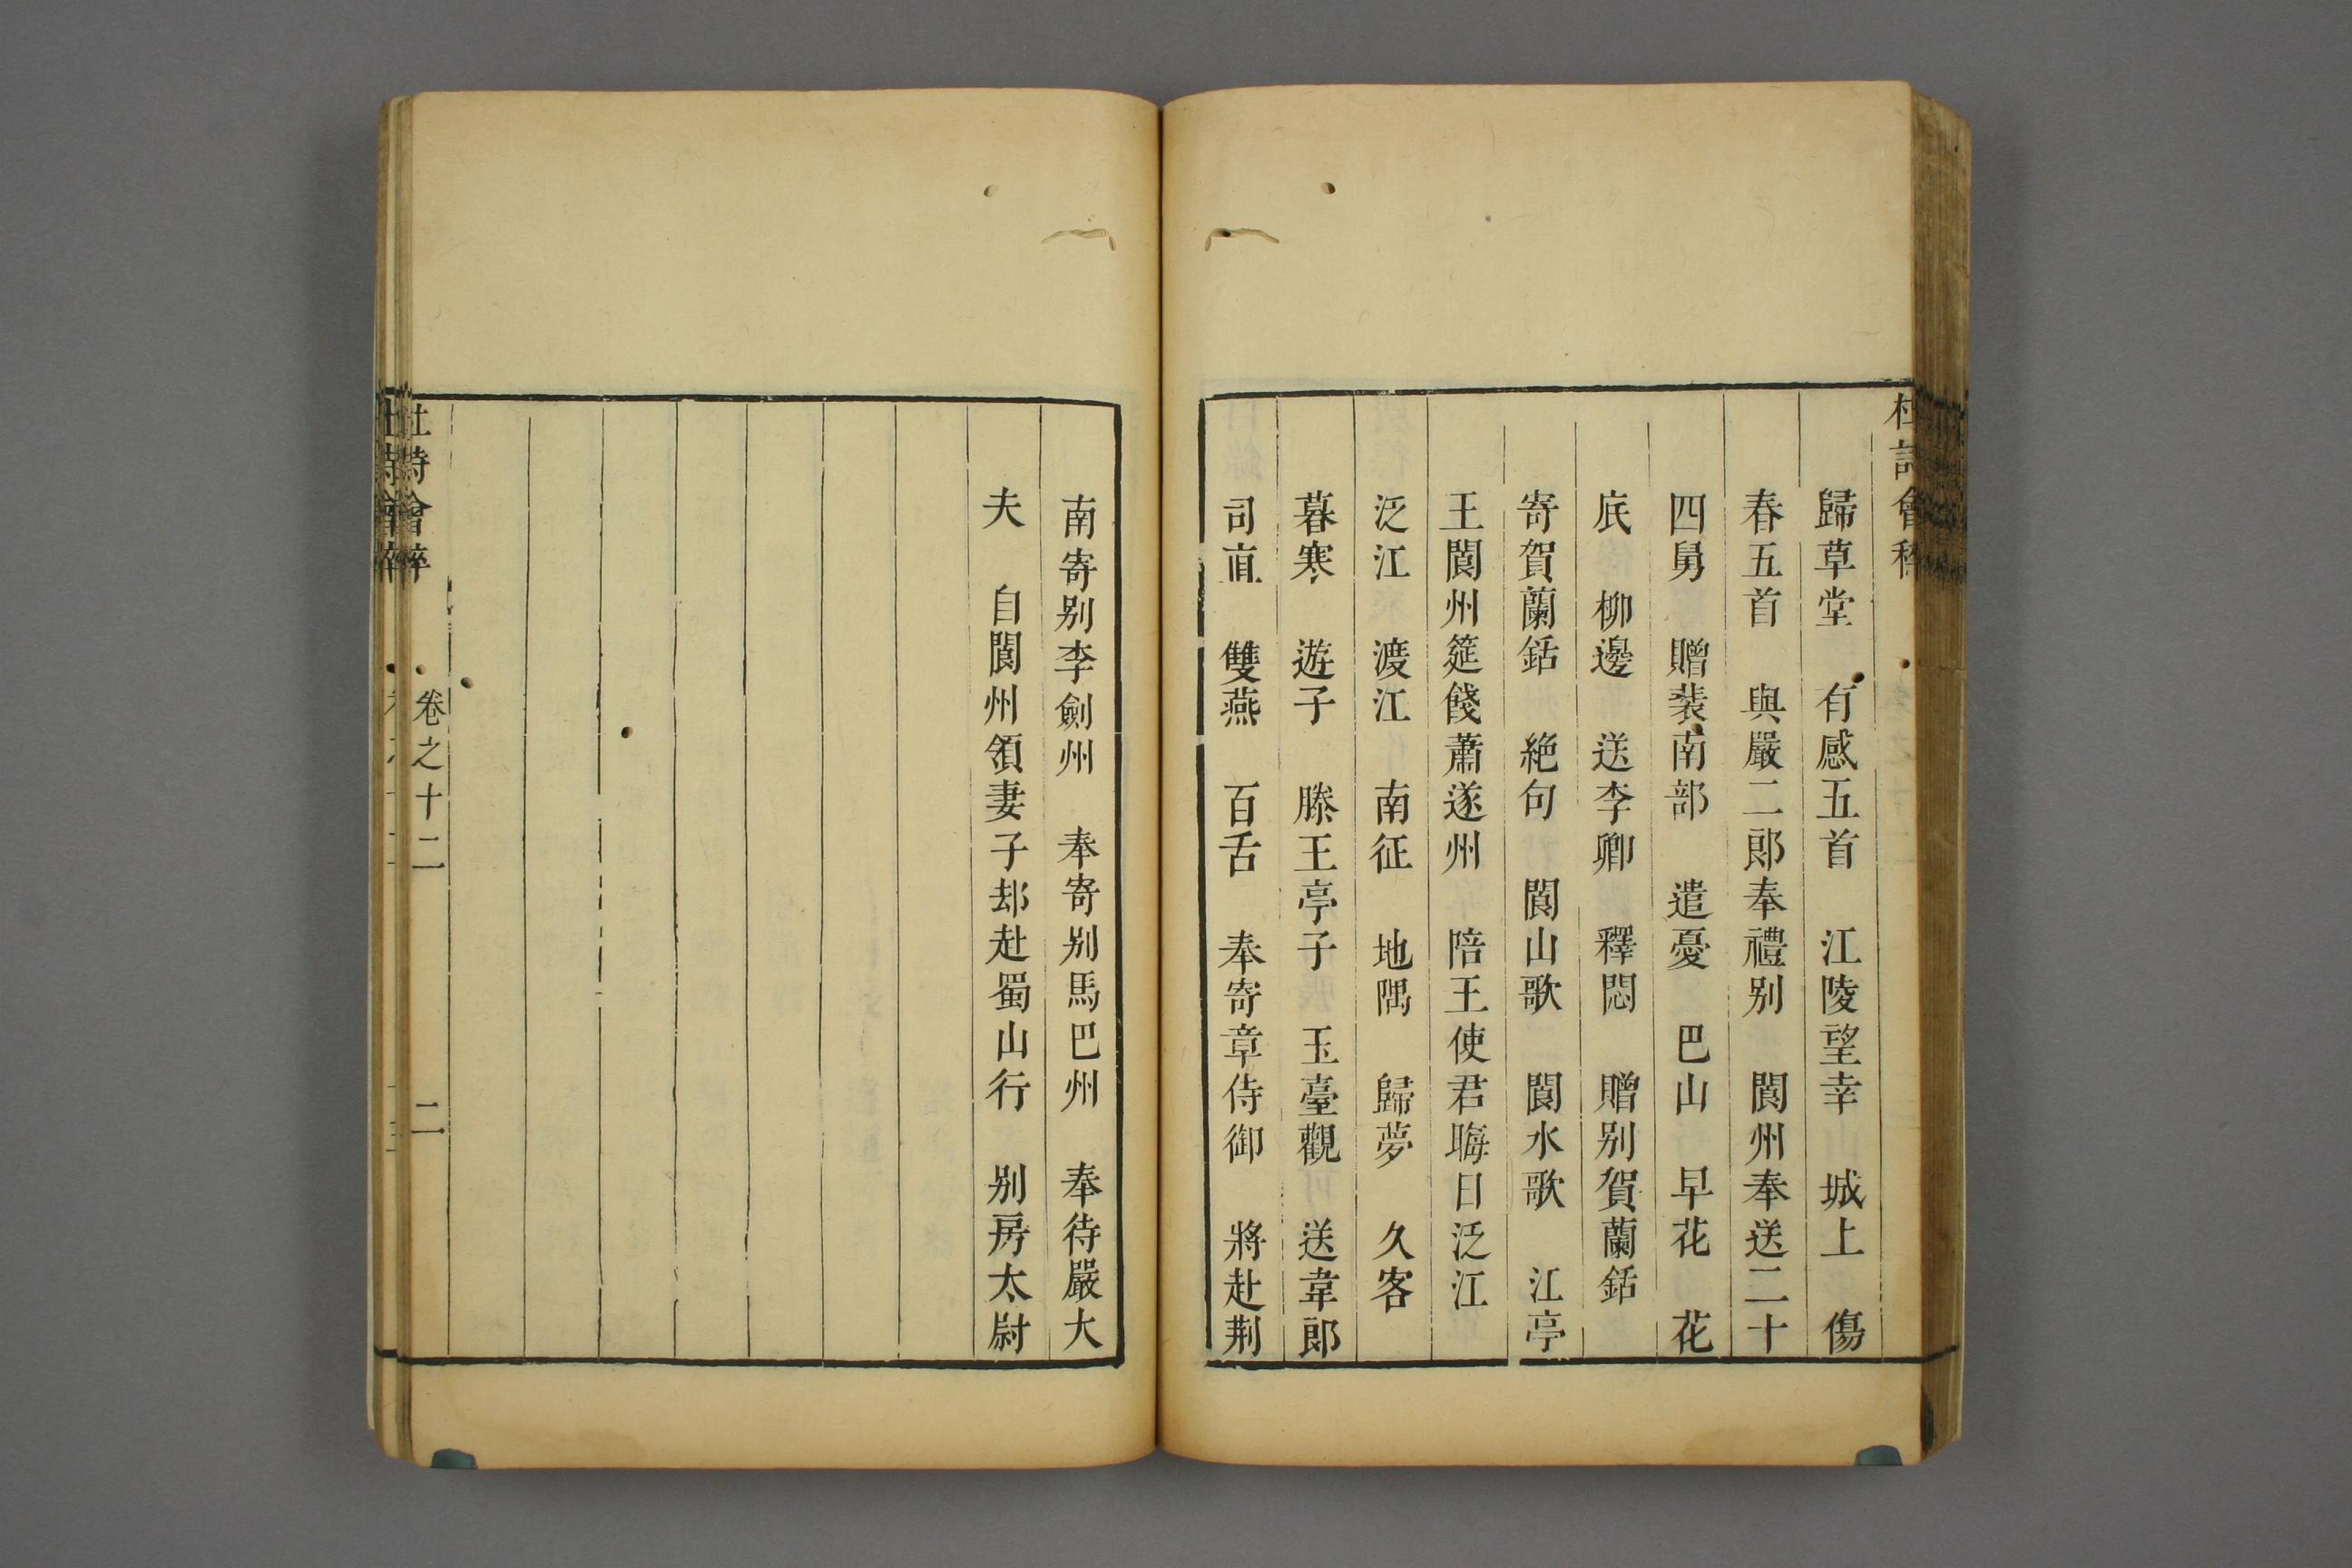 杜詩會稡
歸草堂　有感五首　江陵望幸　城上　傷
春五首　與嚴二郎奉禮别　閬州奉送二十
四舅　贈裴南部　遣憂　巴山　早花　花
底　柳邊　送李卿　釋悶　贈别賀蘭銛
寄賀蘭銛　絶句　閬山歌　閬水歌　江亭
王閬州筵餞蕭遂州　陪王使君晦日泛江
泛江　渡江　南征　地隅　歸夢　久客
暮寒　遊子　滕王亭子　玉臺觀　送韋郎
司直　雙燕　百舌　奉寄章侍御　將赴荆
南寄别李劍州　奉寄别馬巴州　奉待嚴大
夫　自閬州領妻子却赴蜀山行　别房太尉
杜詩會稡　卷之十二　二